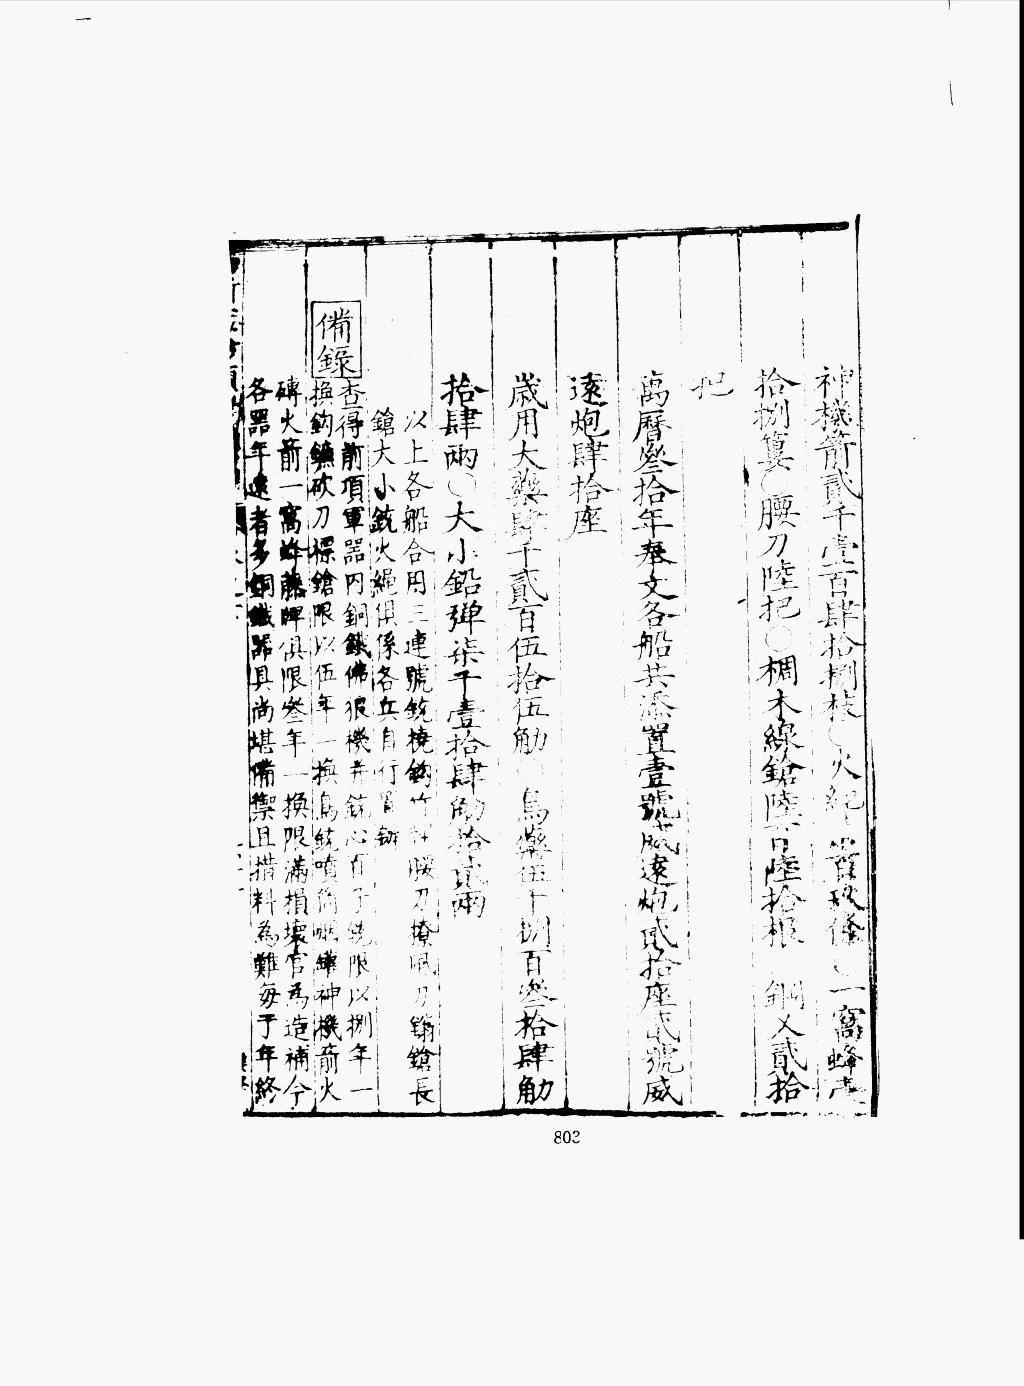 神機箭貳千壹百肆拾捌枝○火繩 條○一窩蜂壹
拾捌簍○腰刀陸把○椆木線鎗陸百陸拾根 鋼叉貳拾
把
萬曆叁拾年奉文各船共添置壹號威遠炮貳拾座貳號威
遠炮肆拾座
歲用大藥肆千貳百伍拾伍觔○鳥藥伍千捌百叁拾肆觔
拾肆兩○大小鉛彈柒千壹拾肆觔拾貳兩
以上各船合用三連號銃撓鈎竹 腰刀撩 刀鏾鎗長
鎗大小銃火繩俱係各兵自行置辦
備錄
查得前項軍器內銅鐵佛狼機并銃心 子銃限以捌年一
換鈎鐮砍刀標鎗限以伍年一換鳥銃噴筒 罐神機箭火
磚火箭一窩蜂藤牌俱限叁年一換限滿損壞官為造補今
各器年遠者多銅鐵器具尚堪備禦且措料為難每于年終
803